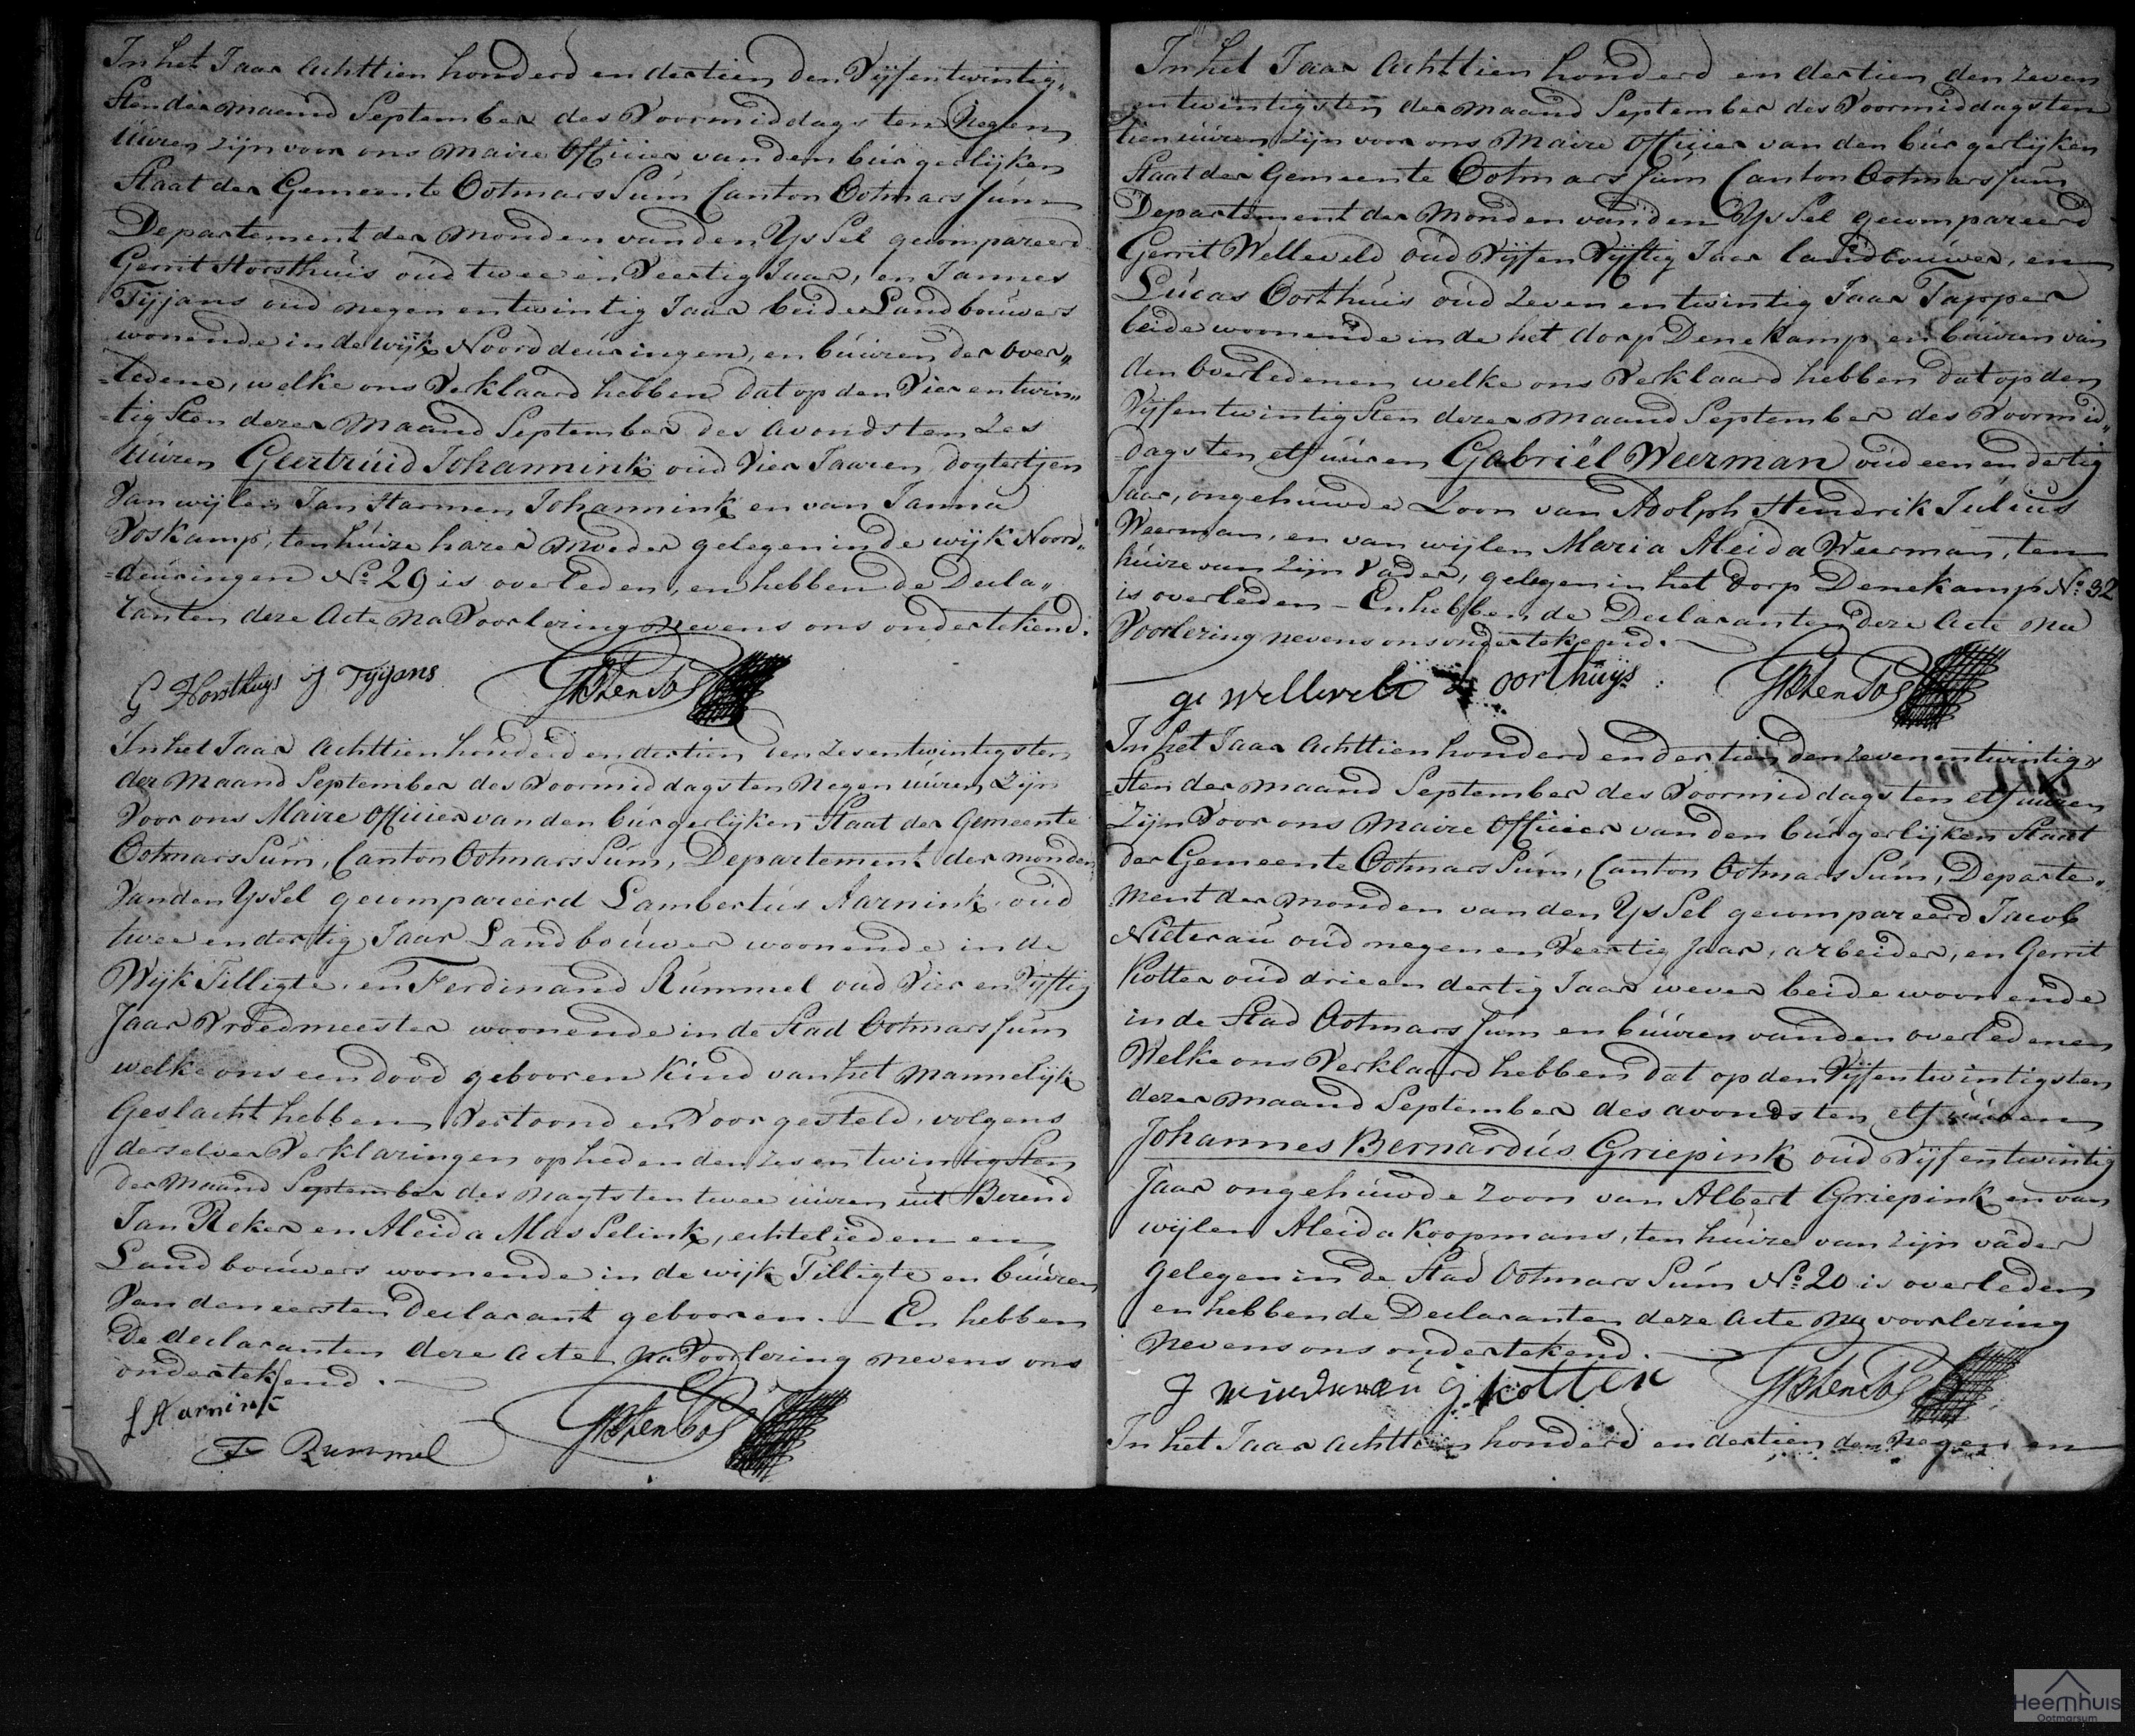 In het Jaar Achttien honderd en dertien den Vijfentwintig„
sten der maand September des Voormiddags ten Negen
úúren zijn voor ons Maire Officier van den búrgerlijken
Staat der Gemeente Ootmarssúm Canton Ootmarssúm
Departement der Monden van den Yssel gecompareerd
Gerrit Horsthúis oúd twee en Veertig Jaar, en Jannes
Tijjans oud negen en twintig Jaar beide Landboúwers
wonende in de wijk Noorddeúringen, en búúren der over„
=ledene, welke ons Verklaard hebben dat op den Vier en twin„
=tigsten dezer Maand September des Avonds ten Zes
úúren Geertrúid Johannink oúd Vier Jaaren dogtertjen
Van wijlen Jan Harmen Johannink en van Janna
Voskamp, ten húize harer Moeder gelegen in de wijk Noord„
=deúringen No 29 is overleden, en hebben de Decla„
ranten deze Acte Na Voorlezing nevens ons ondertekend.
G Horsthuys J Tyjans
In het Jaar Achttien honderd en dertien den zesentwintigsten
der Maand September des Voormiddags ten Negen úúren zijn
Voor ons Maire Officier van den búrgerlijken Staat der Gemeente
Ootmarssúm, Canton Ootmarssúm, Departement der monden
Van den Yssel gecompareerd Lambertús Harnink oúd
twee en dertig Jaar Landboúwer woonende in de
Wijk Tilligte, en Ferdinand Rúmmel oud Vier en Vijftig
Jaar Vroedmeester woonende in de Stad Ootmarssúm
welke ons een dood gebooren Kind van het Mannelijk
Geslacht hebben Vertoond en Voorgesteld, volgens
derselver Verklaringen op heden den zes en twintigsten
der Maand September des Nagts ten twee úúren úit Berend
Jan Reker en Aleida Masselink, echtelieden en
Landboúwers woonende in de wijk Tilligte en búúren
Van den eersten Declarant gebooren. — En hebben
De declaranten deze Acte Na Voorlezing nevens ons
ondertekend.
L Harnink
F Rummel
In het Jaar Achttien honderd en dertien den zeven
entwintigsten der Maand September des Voormiddags ten
tien úúren zijn voor ons Maire Officier van den búrgerlijken
Staat der Gemeente Ootmarssúm Canton Ootmarssúm
Departement der Monden van den Yssel gecompareerd
Gerrit Welleveld oúd Vijf en Vijftig Jaar landboúwer, en
Lúcas Oorthúis oúd Zeven en twintig Jaar Tapper
beide woonende in de het dorp Denekamp en búúren van
den Overledenen welke ons Verklaard hebben dat op den
Vijfentwintigsten dezer maand September des Voormid„
=dags ten elf úúren Gabriël Weerman oúd een en dertig
Jaar, ongehuwde Zoon van Adolph Hendrik Julius
Weerman, en van wijlen Maria Aleida Weerman, ten
húize van zijn Vader, gelegen in het dorp Denekamp No 32
is overleden – En hebben de Declaranten deze Acte na
Voorlezing nevens ons ondertekend.
ge welleveld L oorthuys
In het Jaar Achttien honderd en dertien den zevenentwintig„
=sten der maand September des Voormiddags ten elf úúren
Zijn Voor ons Maire Officier van den búrgerlijken Staat
der Gemeente Ootmarssúm, Canton Ootmarssúm, Departe„
ment der Monden van den Yssel gecompareerd Jacob
Nieteraú oúd negen en Veertig Jaar, arbeider, en Gerrit
Kotter oúd drie en dertig Jaar wever beide woonende
in de Stad Ootmarssúm en búúren van den overledenen
Welke ons Verklaard hebben dat op den Vijfentwintigsten
dezer maand September des avonds ten elf úúren
Johannes Bernardús Griepink oúd Vijfentwintig
Jaar ongehúwde Zoon van Albert Griepink en van
wijlen Aleida Koopmans, ten húize van zijn vader
gelegen in de Stad Ootmarssúm No 20 is overleden
en hebben de Declaranten deze Acte na voorlezing
nevens ons ondertekend.
g kotter
In het Jaar Achttien honderd en dertien den Negen en
Heemhuis
Ootmarsum